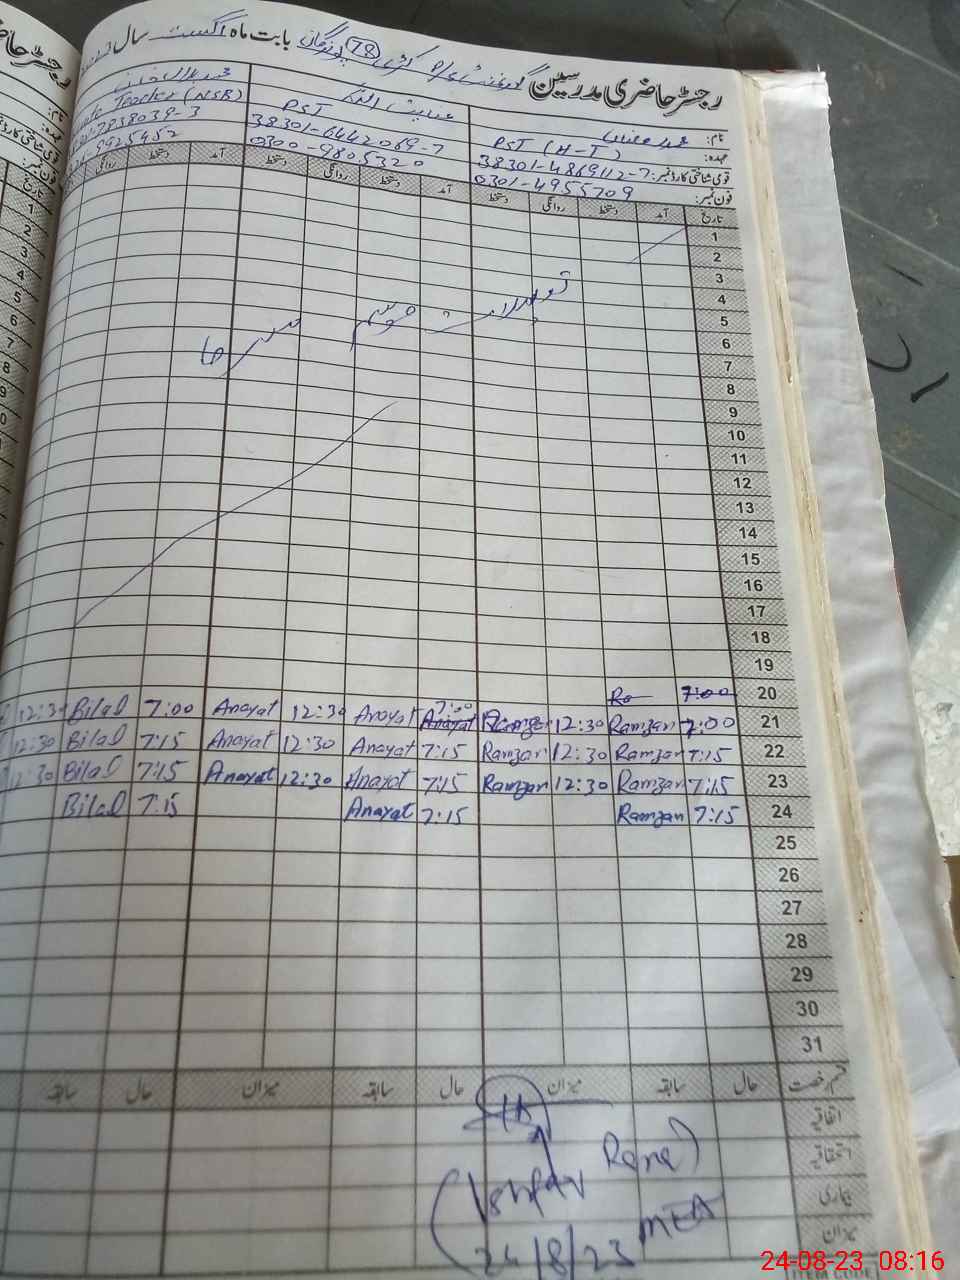 رجسٹر حاضری مدرسین گورنمنٹ P/S بابت ماہ اگست سال
نام:
عنایت اللہ
عہدہ: PST (H-T)
PST
Teacher (NSB)
قومی شناختی کارڈ نمبر: 38301-4869112-7
38301-6442069-7
7838039-3
فون نمبر: 0301-4955709
0300-9805320
9925452
تاریخ آمد دستخط روانگی دستخط آمد دستخط روانگی دستخط آمد دستخط روانگی
1
2
3
4
5
6
7
8
9
10
11
12
13
14
15
16
17
18
19
تعطیلات موسم گرما
20 7:00 Ra
21 7:00 Ramzan 12:30 Ramzan 7:00 Anayat Anayat 12:30 Anayat 7:00 Bilal 12:30
22 7:15 Ramzan 12:30 Ramzan 7:15 Anayat 12:30 Anayat 7:15 Bilal 12:30
23 7:15 Ramzan 12:30 Ramzan 7:15 Anayat 12:30 Anayat 7:15 Bilal 12:30
24 7:15 Ramzan 7:15 Anayat 7:15 Bilal
25
26
27
28
29
30
31
قسم رخصت حال سابقہ میزان حال سابقہ میزان حال سابقہ
اتفاقیہ
استحقاقیہ
بیماری
میزان
(Ishfaq Rana)
MEA
24/8/23
ITEM CODE
24-08-23 08:16